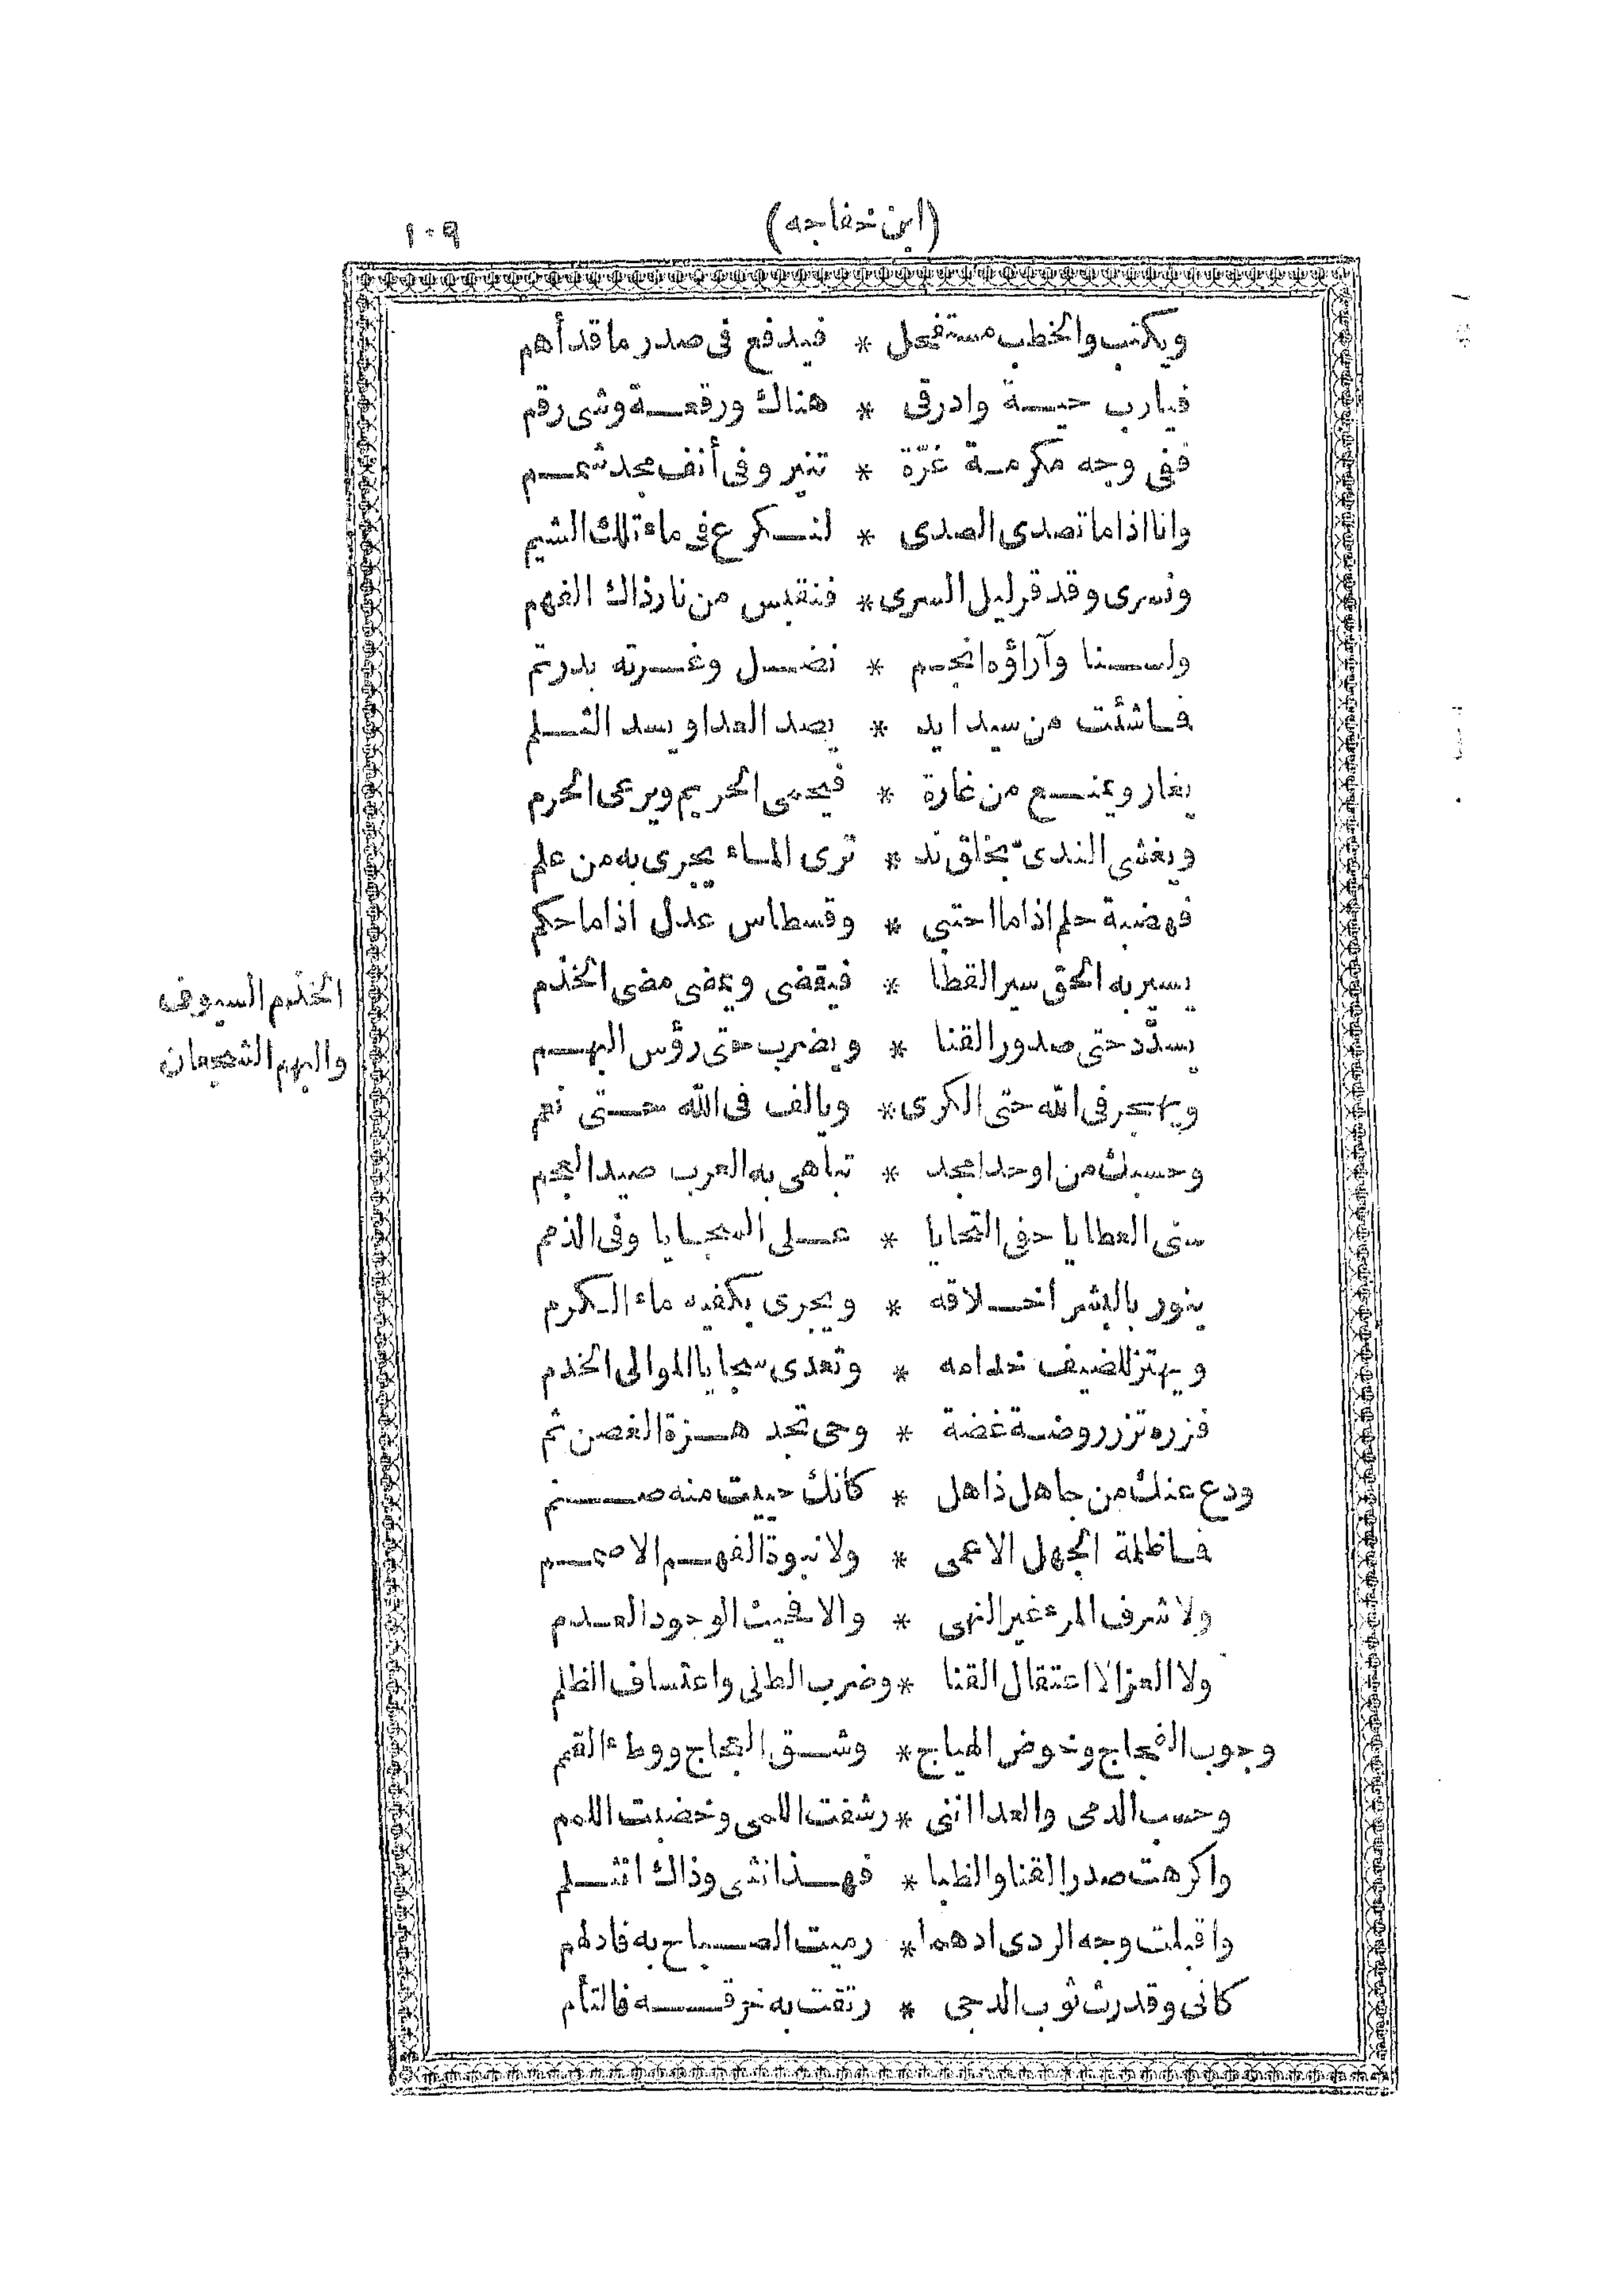 (ابن خفاجه)
١٠٩
ويكتب والخطب مستفحل * فيدفع فى صدر ما قد أهم
فيارب حية وادرقى * هناك ورقعة وشى رقم
ففى وجه مكرمة غرّة * تنير وفى أنف مجد شمم
وانا اذا ما تصدى الصدى * لنكرع فى ماء تلك الشيم
ونسرى وقد قر ليل السرى * فنقبس من نار ذاك الفهم
ولسنا وآراؤه انجم * نضل وغرته بدرتم
فما شئت من سيد ايد * يصد العدا ويسد الثلم
يغار ويمنع من غارة * فيحمى الحريم ويرعى الحرم
ويغشى الندىّ بخلق ند * ترى الماء يجرى به من علم
فهضبة حلم اذا ما احتبى * وقسطاس عدل اذا ما حكم
يسير به الحق سير القطا * فيقضى ويمضى مضى الخذم
يسدّد حتى صدور القنا * ويضرب حتى رؤس البهم
ويهجر فى الله حتى الكرى * ويالف فى الله حتى نعم
وحسبك من اوحد امجد * تباهى به العرب صيد العجم
سنى العطايا حفى التحايا * على السجايا وفى الذمم
ينور بالبشر اخلاقه * ويجرى بكفيه ماء الكرم
ويهتز للضيف خدامه * وتعدى سجايا الموالى الخدم
فزره تزر روضة غضة * وحى تجد هزة الغصن ثم
ودع عنك من جاهل ذاهل * كأنك حييت منه صنم
فما ظلمة الجهل الا عمى * ولا نبوة الفهم الا صمم
ولا شرف المرء غير النهى * والا فحيث الوجود العدم
ولا العز الا اعتقال القنا * وضرب الطلى واعتساف الظلم
وجوب الفجاج وخوض الهياج * وشق العجاج ووطء القمم
وحسب الدمى والعدا اننى * رشفت اللمى وخضبت اللمم
واكرهت صدر القنا والظبا * فهذا انثنى وذاك انثلم
واقبلت وجه الردى ادهما * رميت الصباح به فادلهم
كأنى وقد رث ثوب الدجى * رتقت به خرقه فالتأم
الخذم السيوف
والبهم الشجعان